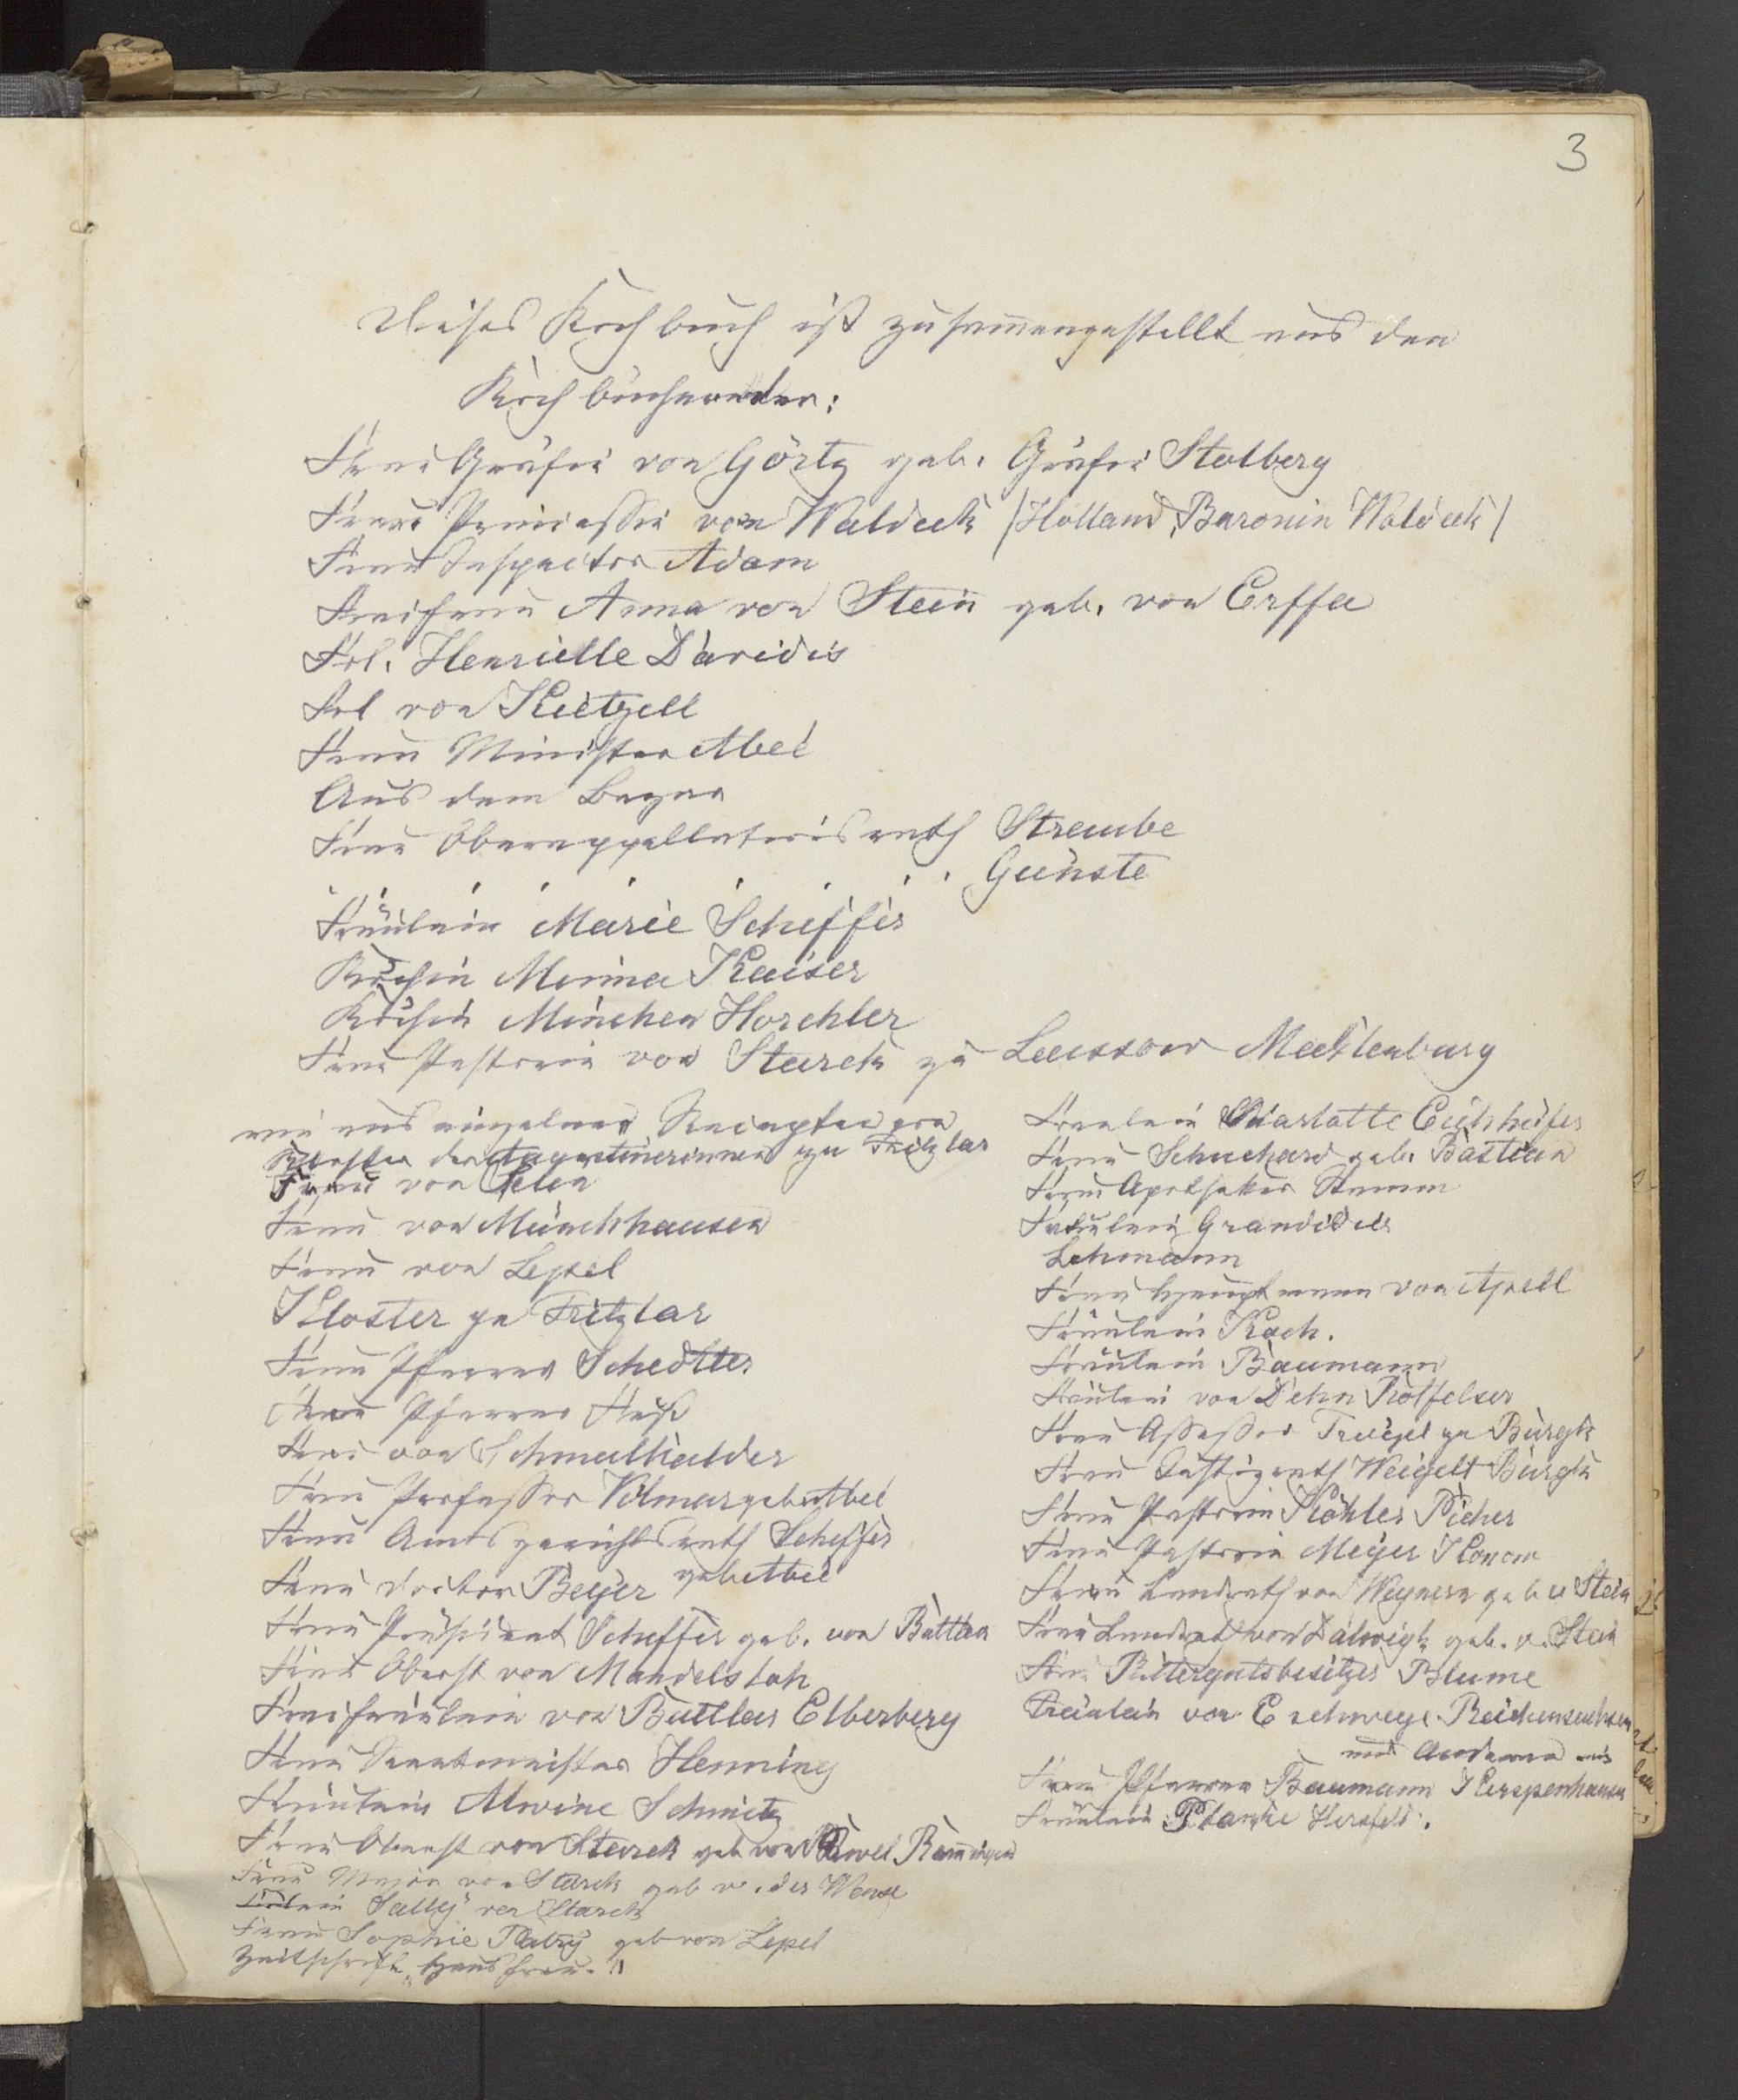 3
Dieses Kochbuch ist zusammengestellt aus den
Kochbüchern der:
Frau Gräfin von Görtz geb. Gräfin Stolberg
Frau Prinzessin von Waldeck (Holland, Baronin Waldeck)
Frau Inspector Adam
Freifrau Anna von Stein geb. von Erffa
Frl. Henriette Davidis
Frl von Kietzell
Frau Minister Abeé
Aus dem Bazar
Frau Oberappellationsrath Straube
Günste
Fräulein Marie Scheffer
Köchin Minna Kaiser
Köchin Minchen Horchler
Frau Pastorin von Starck zu Laussow Mecklenburg
wie aus einzelnen Recepten von
Kloster der Augustinerinnen zu Fritzlar
Frau von
Frau von Münchhausen
Frau von Lepel
Kloster zu Fritzlar
Frau Pfarrer Schedtler
Frau Pfarrer
Frau von Schmalkalder
Frau Professor Vilmar geb. Abeé
Frau Amtsgerichtsrath Scheffer
geb. Abeé
Frau Doctor Beyer
Frau Präsident Scheffer geb. von Buttlar
Frau Oberst von Mandelsloh
Freifräulein von Buttlar Elberberg
Frau Rentmeister Henning
Fräulein Alwine Schmitz
Frau Oberst von Starck geb von Pawel Rammingen
Frau Major von Starck geb v. der Wense
Fräulein Sally von Starck
Frau Sophie Raby geb von Lepel
Zeitschrift "Hausfrau."
Fräulein Charlotte Eichhöfer
Frau Schuchard geb. Bastian
Frau Apotheker Stamm
Fräulein Grandidier
Lehmann
Frau Hauptmann von Apell
Fräulein Koch.
Fräulein Baumann
Fräulein von Dehn Rotfelser
Frau Assessor zu Burgk
Frau Justizrath Weigelt Burgk
Frau Pastorin Köhler Picher
Frau Pastorin Meyer Konow
Frau Landrath von geb v Stein
Frau Landrath von Dalwigk geb. v. Stein
Frau Rittergutsbesitzer Blume
Fräulein von Eschwege-Reichensachsen
und Anderen
Frau Pfarrer Baumann Kerspenhausen
Fräulein Planke Hersfeld.